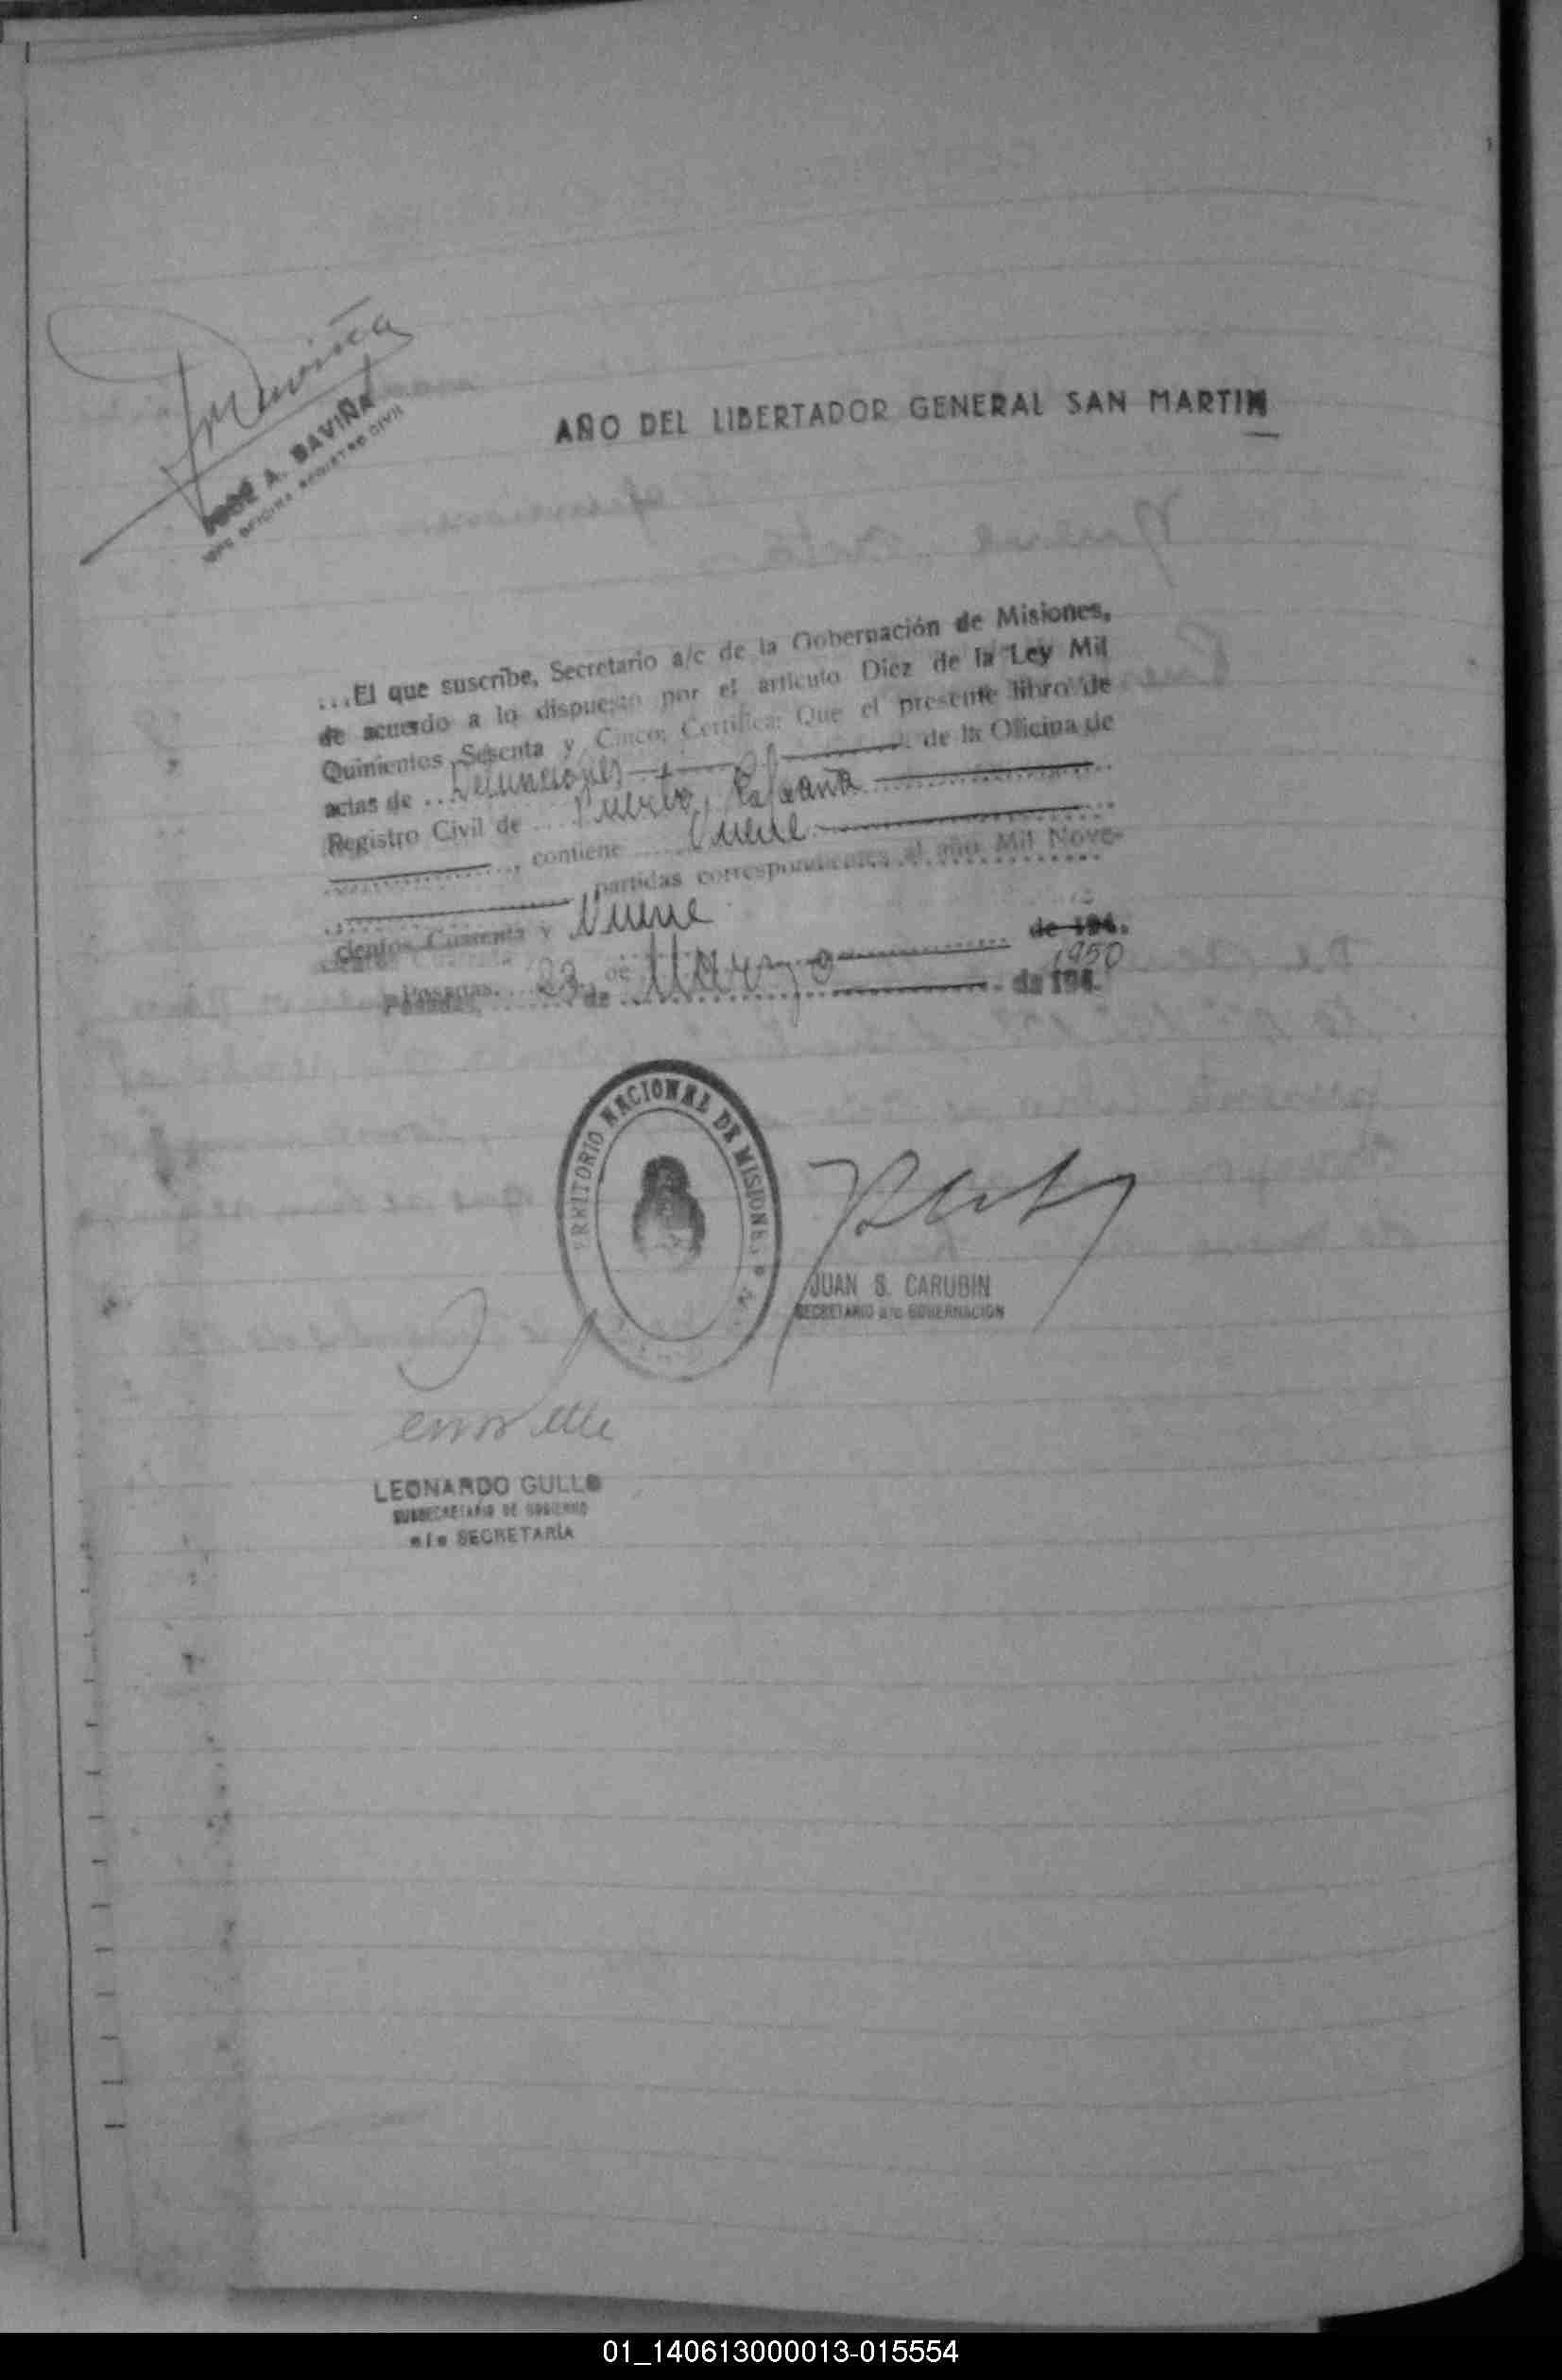 Daviña
JOSÉ A. DAVIÑA
JEFE OFICINA REGISTRO CIVIL
AÑO DEL LIBERTADOR GENERAL SAN MARTIN
...El que suscribe, Secretario a/c de la Gobernación de Misiones,
de acuerdo a lo dispuesto por el artículo Diez de la Ley Mil
Quinientos Sesenta y Cinco; Certifica: Que el presente libro de
actas de ... Defunciones de la Oficina de
Registro Civil de ... Puerto
, contiene ... Nueve
partidas correspondientes al año Mil Nove-
cientos Cuarenta y Nueve
Posadas, 23 de Marzo de 194.
1950
Posadas, de de 194.
TERRITORIO NACIONAL DE MISIONES
JUAN S. CARUBIN
SECRETARIO a/c GOBERNACION
LEONARDO GULLO
SUBSECRETARIO DE GOBIERNO
a/c SECRETARÍA
01_140613000013-015554